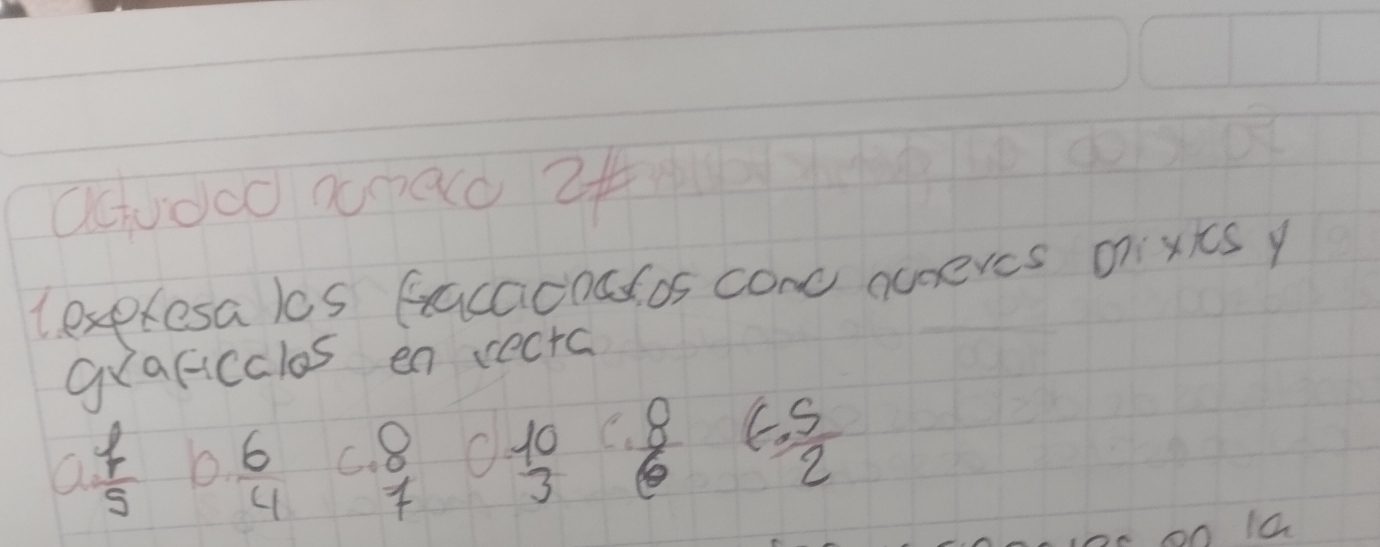 actividad 2#
1. expresa los fraccionarios como numeros mixtos y
graficalos en recta
a. 7/5 b. 6/4 c. 8/7 d. 10/3 e. 8/6 f. 5/2
en la